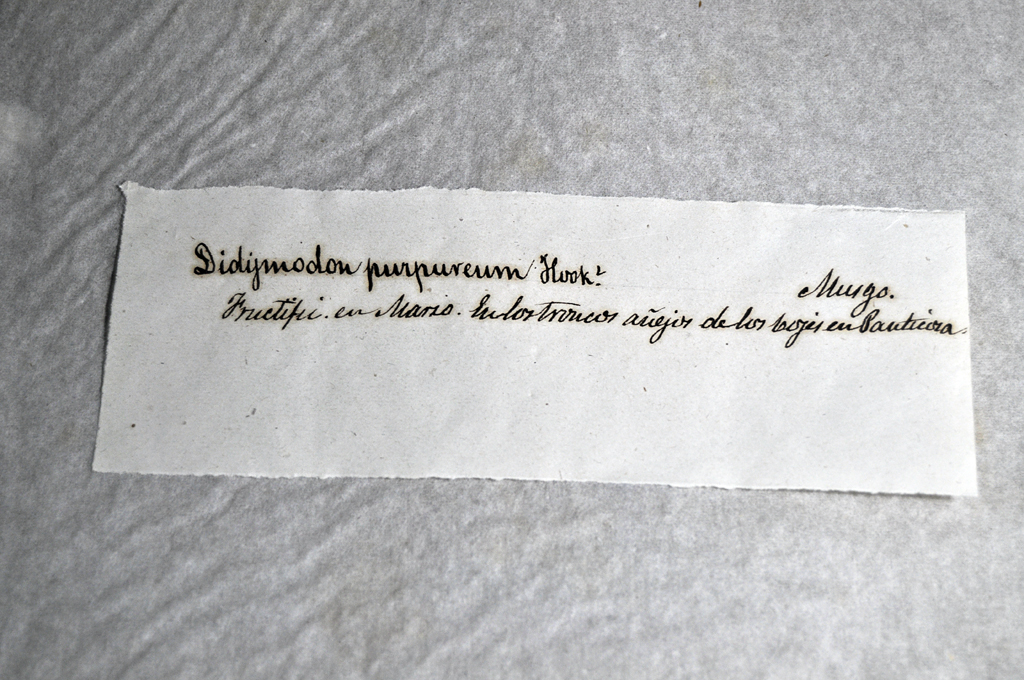 Didijmodon purpureum Hook.ʳ
Musgo.
Fructifi. en Marzo. En los troncos añejos de los bojes en Panticosa.